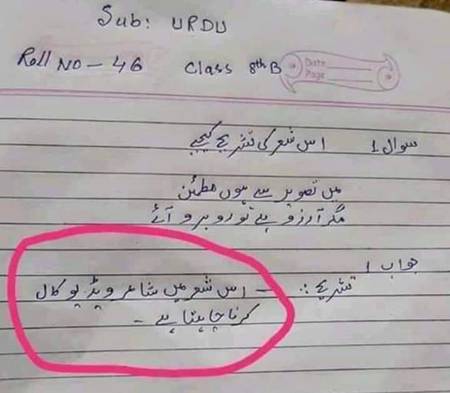 Sub: URDU
Roll NO - 46 Class 8th B
Date
Page
سوال 1 اس شعر کی تشریح کیجیے
میں تصویر سے ہوں مطمئن
مگر آرزو ہے تو روبرو آئے
جواب 1
تشریح :- اس شعر میں شاعر ویڈیو کال
کرنا چاہتا ہے -